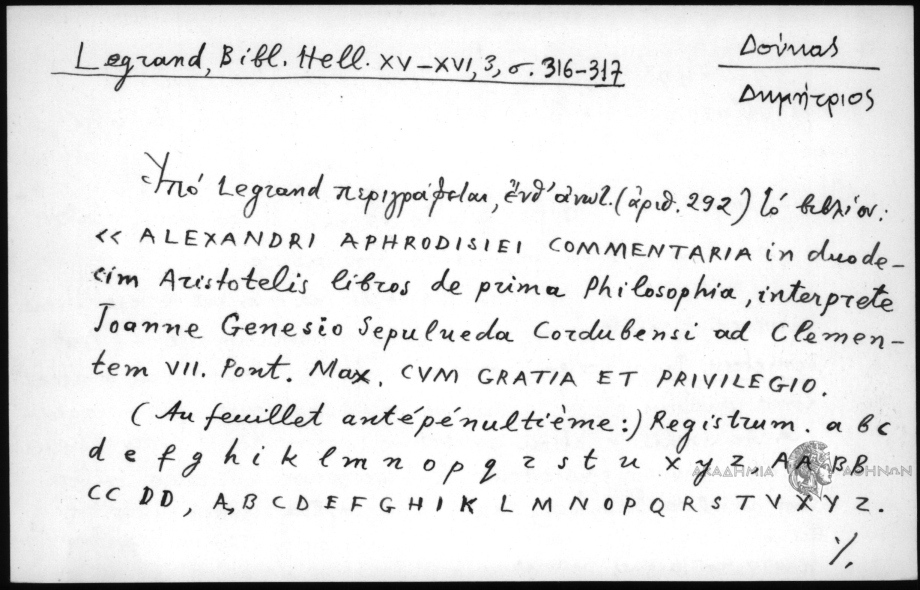 Legrand, Bibl. Hell. XV–XVI, 3, σ. 316–317
Δούκας
Δημήτριος
Ὑπό Legrand περιγράφεται, ἔνθ' ἀνωτ. (ἀριθ. 292) τό βιβλίον:
<< ALEXANDRI APHRODISIEI COMMENTARIA in duode-
cim Aristotelis libros de prima Philosophia, interprete
Joanne Genesio Sepulueda Cordubensi ad Clemen-
tem VII. Pont. Max. CVM GRATIA ET PRIVILEGIO.
(Au feuillet antépénultième:) Registrum. a b c
d e f g h i k l m n o p q r s t u x y z, AA BB
CC DD, A, B C D E F G H I K L M N O P Q R S T V X Y Z.
ΑΚΑΔΗΜΙΑ ΑΘΗΝΩΝ
·/.